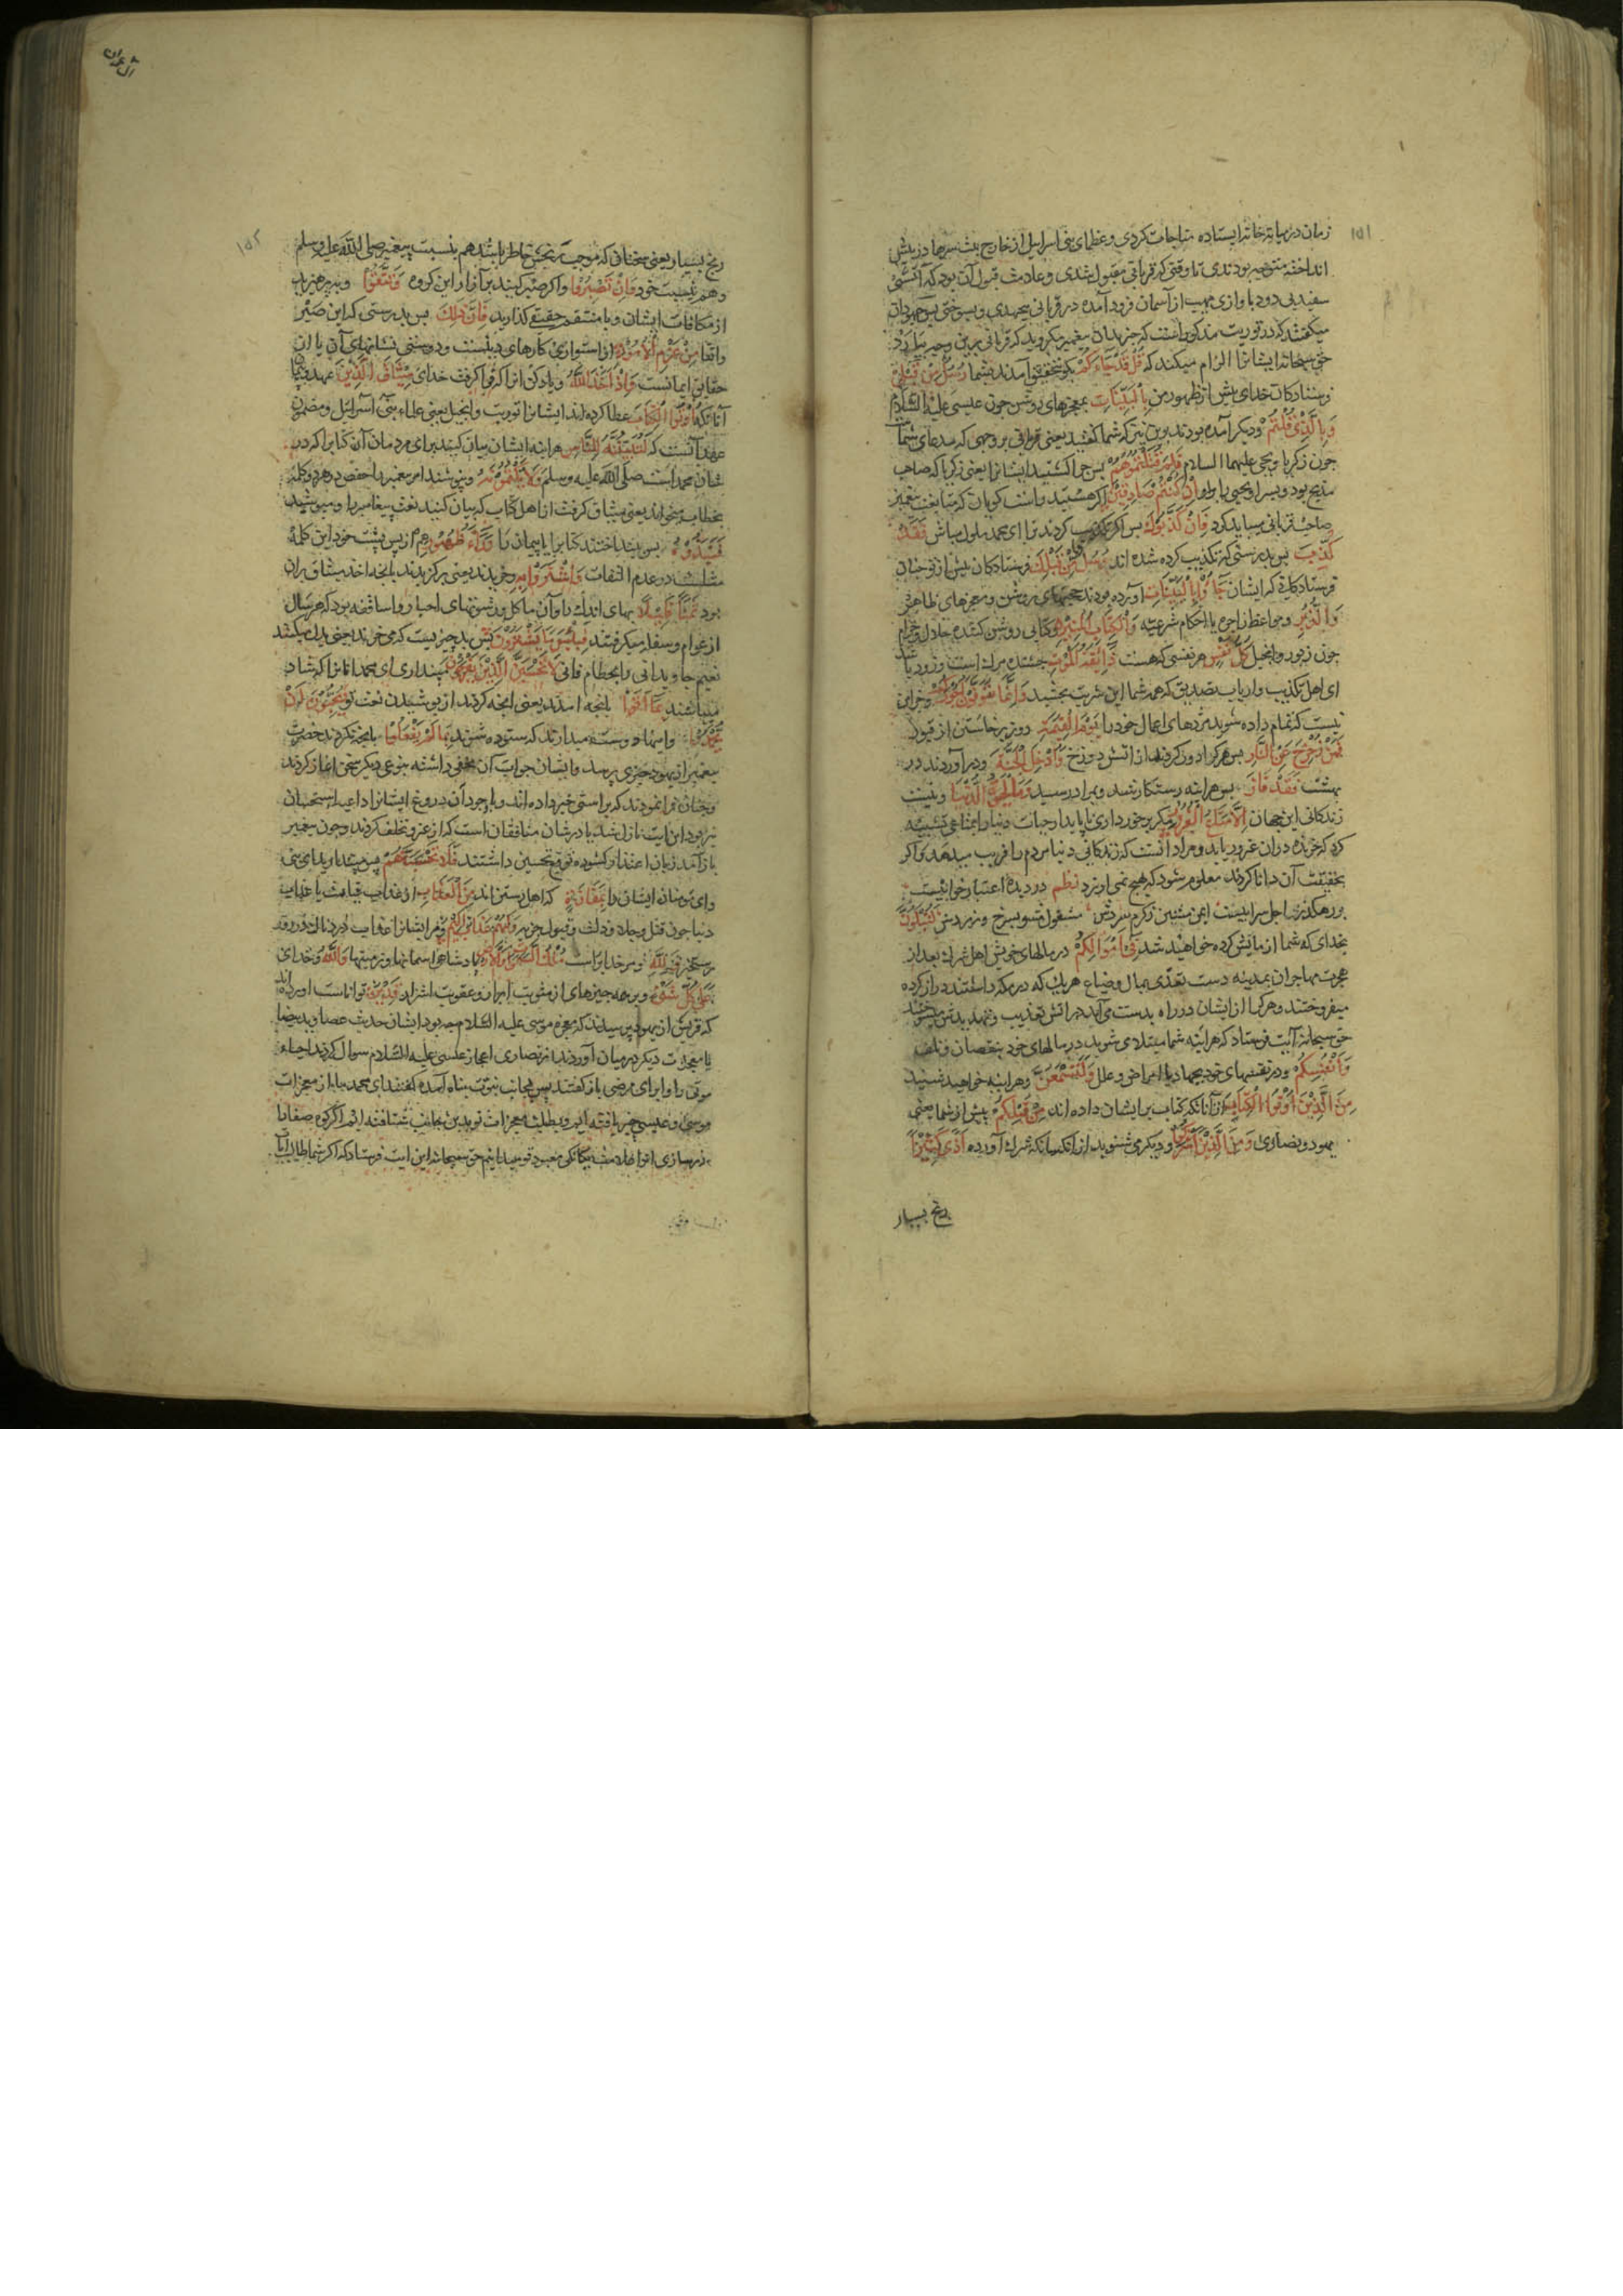 ۱۵۱
زمان در میانه خانه ایستاده مناجات کردی و عظمای بنی اسرائیل از خارج بیت سرها در پیش
انداخته متوجه بودندی تا وقتی که قربانی مقبول شدی و علامت قبول آن بود که آتشی
سفید بی دود با آوازی مهیب از آسمان فرود آمده در قربانی پیچیدی و بسوختی پس جهودان
میگفتند که در توریت مذکور است که جز بدان پیغمبر مگروید که قربانی برین وجه بیارد
حق سبحانه ایشانرا الزام میکند که قُلْ قَدْ جَاءَكُمْ بگو بتحقیق آمدند بشما رُسُلٌ مِنْ قَبْلِي
فرستادکان خدای پیش از ظهور من بِالْبَيِّنَاتِ بمعجزهای روشن چون عیسی علیه السلام
وَبِالَّذِي قُلْتُمْ و دیکر آمده بودند بدین نیز که شما گفتید یعنی قربانی بر وجهی که مدعای شماست
چون زکریا و یحیی علیهما السلام فَلِمَ قَتَلْتُمُوهُمْ پس چرا کشتید ایشانرا یعنی زکریا که صاحب
مذبح بود و پسر او یحیی را إِنْ كُنْتُمْ صَادِقِينَ اکر هستید راست کویان که متابعت پیغمبر
صاحب قربانی میباید کرد فَإِنْ كَذَّبُوكَ پس اکر تکذیب کردند ترا ای محمد ملول مباش فَقَدْ
كُذِّبَ پس بدرستی که تکذیب کرده شده اند رُسُلٌ مِنْ قَبْلِكَ فرستادکان پیش از تو چنان
فرستادکانی که ایشان جَاءُوا بِالْبَيِّنَاتِ آورده بودند حجتهای روشن و معجزهای ظاهر
وَالزُّبُرِ و مواعظ زاجره یا احکام شرعیه وَالْكِتَابِ الْمُنِيرِ و کتابی روشن کننده حلال و حرام
چون زبور و انجیل كُلُّ نَفْسٍ هر نفسی که هست ذَائِقَةُ الْمَوْتِ چشنده مرک است و زود باشد
ای اهل تکذیب و ارباب تصدیق که همه شما این شربت بچشید وَإِنَّمَا تُوَفَّوْنَ أُجُورَكُمْ و جز این
نیست که تمام داده شوید مزدهای اعمال خود را يَوْمَ الْقِيَامَةِ روز برخاستن از قبور
فَمَنْ زُحْزِحَ عَنِ النَّارِ پس هر کرا دور کردند از آتش دوزخ وَأُدْخِلَ الْجَنَّةَ و درآوردند در
بهشت فَقَدْ فَازَ پس هراینه رستکار شد و بمراد رسید وَمَا الْحَيَاةُ الدُّنْيَا و نیست
زندکانی این جهان إِلَّا مَتَاعُ الْغُرُورِ مکر برخورداری ناپایدار حیات دنیا را بمتاعی تشبیه
کرد که خرنده دران غرور یابد و مراد آنست که زندکانی دنیا مردم را فریب میدهد و اکر
بحقیقت آن دانا کردند معلوم شود که هیچ نمی ارزد نظم در دیده اعتبار خوابیست
بر رهکذر اجل سرابیست ایمن منشین زکرم و سردش مشغول مشو بسرخ و زردش لَتُبْلَوُنَّ
بخدای که شما آزمایش کرده خواهید شد فِي أَمْوَالِكُمْ در مالهای خویش اهل شرک بعد از
هجرت مهاجران بمدینه دست تعدی بمال و ضیاع هریک که در مکه داشتند دراز کرده
میفروختند و هرکرا از ایشان در راه بدست می آید در آتش تعذیب و تهدید میسوختند
حق سبحانه آیت فرستاد که هراینه شما مبتلا می شوید در مالهای خود بنقصان و تلف
وَأَنْفُسِكُمْ و در نفسهای خود بجهاد یا امراض و علل وَلَتَسْمَعُنَّ و هراینه خواهید شنید
مِنَ الَّذِينَ أُوتُوا الْكِتَابَ از آنانکه کتاب بر ایشان داده اند مِنْ قَبْلِكُمْ پیش از شما یعنی
یهود و نصاری وَمِنَ الَّذِينَ أَشْرَكُوا و دیکر می شنوید از آنکسانکه شرک آورده أَذًى كَثِيرًا
رنج بسیار
آل عمران
۱۵۲
رنج بسیار یعنی سخنانی که موجب رنجش خاطر باشد هم بنسبت پیغمبر صلی الله علیه وسلم
و هم بنسبت خود وَإِنْ تَصْبِرُوا و اکر صبر کنید بر آزار این کروه وَتَتَّقُوا و بپرهیزید
از مکافات ایشان و با منتقم حقیقی کذارید فَإِنَّ ذَلِكَ پس بدرستی که این صبر
واتقا مِنْ عَزْمِ الْأُمُورِ از استواری کارهای دینست و درستی نشانهای آن یا از
حقایق ایمانست وَإِذْ أَخَذَ اللَّهُ و یاد کن آنرا که فرا گرفت خدای مِيثَاقَ الَّذِينَ عهد و پیمان
آنانکه أُوتُوا الْكِتَابَ عطا کرده اند ایشانرا توریت و انجیل یعنی علماء بنی اسرائیل و مضمون
عهد آنست که لَتُبَيِّنُنَّهُ لِلنَّاسِ هراینه ایشان بیان کنند برای مردمان آن کتابرا که در
شان محمد است صلی الله علیه وسلم وَلَا تَكْتُمُونَهُ و نپوشند امر پیغمبر را حفص در هر دو کلمه
بخطاب میخواند یعنی میثاق کرفت از اهل کتاب که بیان کنید نعت پیغامبر را و مپوشید
فَنَبَذُوهُ پس بینداختند کتابرا یا پیمان را وَرَاءَ ظُهُورِهِمْ از پس پشت خود این کلمه
مثلست در عدم التفات وَاشْتَرَوْا بِهِ و خریدند یعنی برکزیدند بآنچه اخذ میثاق بران
بود ثَمَنًا قَلِيلًا بهای اندک را و آن ماکل و رشوتهای احبار و اساقفه بود که هر سال
از عوام و سفله میکرفتند فَبِئْسَ مَا يَشْتَرُونَ پس بد چیزیست که می خرند یعنی بدل میکنند
نعیم جاودانی را بحطام فانی لَا تَحْسَبَنَّ الَّذِينَ يَفْرَحُونَ مپنداری ای محمد آنانرا که شاد
میباشند بِمَا أَتَوْا بآنچه آمدند یعنی آنچه کردند از پوشیدن نعت تو وَيُحِبُّونَ أَنْ
يُحْمَدُوا و ایشان دوست میدارند که ستوده شوند بِمَا لَمْ يَفْعَلُوا بآنچه نکردند حضرت
پیغمبر از یهود چیزی پرسید و ایشان جواب آن مخفی داشته بنوعی دیکر سخن آغاز کردند
و چنان فرا نمودند که براستی خبر داده اند و باوجود آن دروغ ایشانرا داعیه استحسان
نیز بود این آیت نازل شد یا در شان منافقان است که از غزو تخلف کردند و چون پیغمبر
باز آمد زبان اعتذار کشوده توقع تحسین داشتند فَلَا تَحْسَبَنَّهُمْ پس مپندارید ای نبی
و ای مؤمنان ایشان را بِمَفَازَةٍ که اهل رستن اند مِنَ الْعَذَابِ از عذاب قیامت یا عذاب
دنیا چون قتل و جلا و ذلت و قبول جزیه وَلَهُمْ عَذَابٌ أَلِيمٌ و مر ایشانرا عذابی دردناک در روز
رستخیز وَلِلَّهِ و مر خدایراست مُلْكُ السَّمَوَاتِ وَالْأَرْضِ پادشاهی آسمانها و زمینها وَاللَّهُ و خدای
عَلَى كُلِّ شَيْءٍ و بر همه چیزهای از مثوبت ابرار و عقوبت اشرار قَدِيرٌ تواناست آورده اند
که قریش از یهود پرسیدند که معجزه موسی علیه السلام چه بود ایشان حدیث عصا و ید بیضا
با معجزات دیکر در میان آوردند از نصاری اعجاز عیسی علیه السلام سوال کردند احیاء
موتی و ابرای مرضی باز کفتند پس بجانب نبوت پناه آمده کفتند ای محمد ما از معجزات
موسی و عیسی خبر یافته ایم و بطلب معجزات تو بدین جانب شتافته ایم اکر کوه صفا را
زر سازی اقرار بیکانکی معبود تو میدانیم حق سبحانه این آیت فرستاد که اکر شما طالب آیات